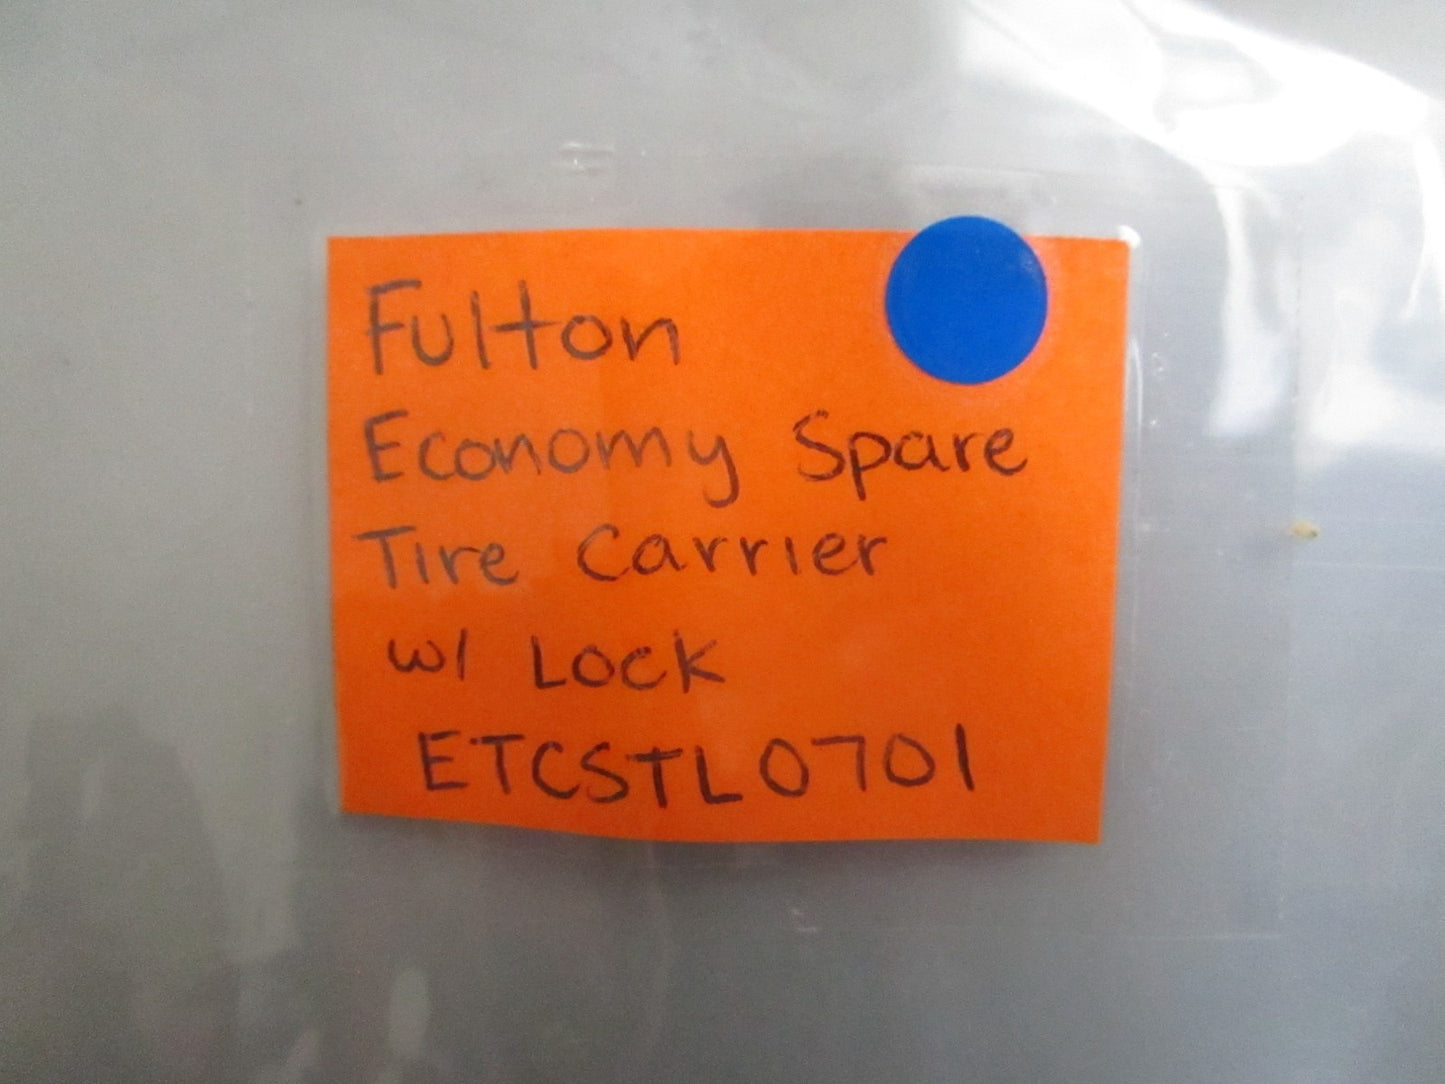 Fulton
Economy Spare
Tire Carrier
w/ Lock
ETCSTL0701